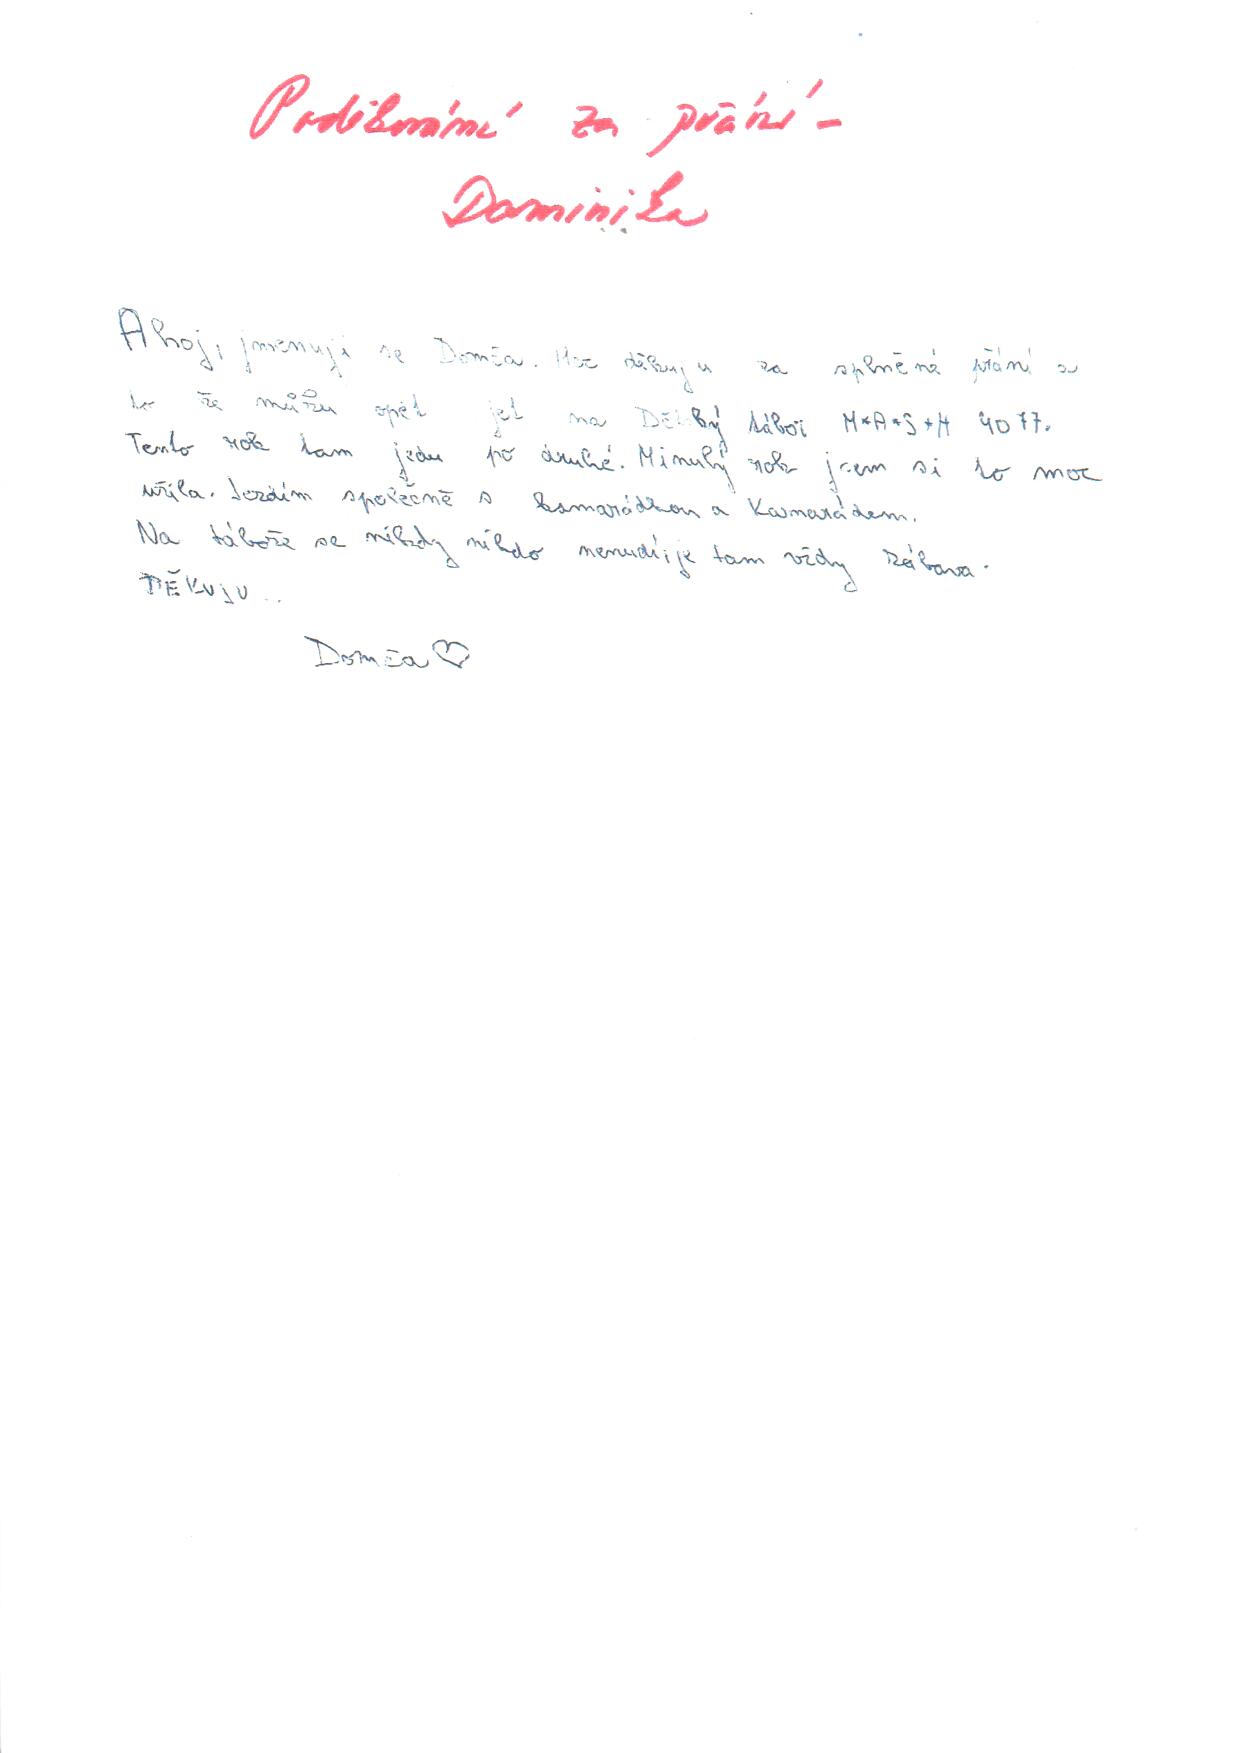 Poděkování za přání -
Dominika
Ahoj, jmenuji se Domča. Moc děkuju za splněná přání a
to že můžu opět jet na Dětský tábor M*A*S*H 4077.
Tento rok tam jedu po druhé. Minulý rok jsem si to moc
užila. Jezdím společně s kamarádkou a Kamarádem.
Na táboře se nikdy nikdo nenudí, je tam vždy zábava.
DĚKUJU ..
Domča ♡